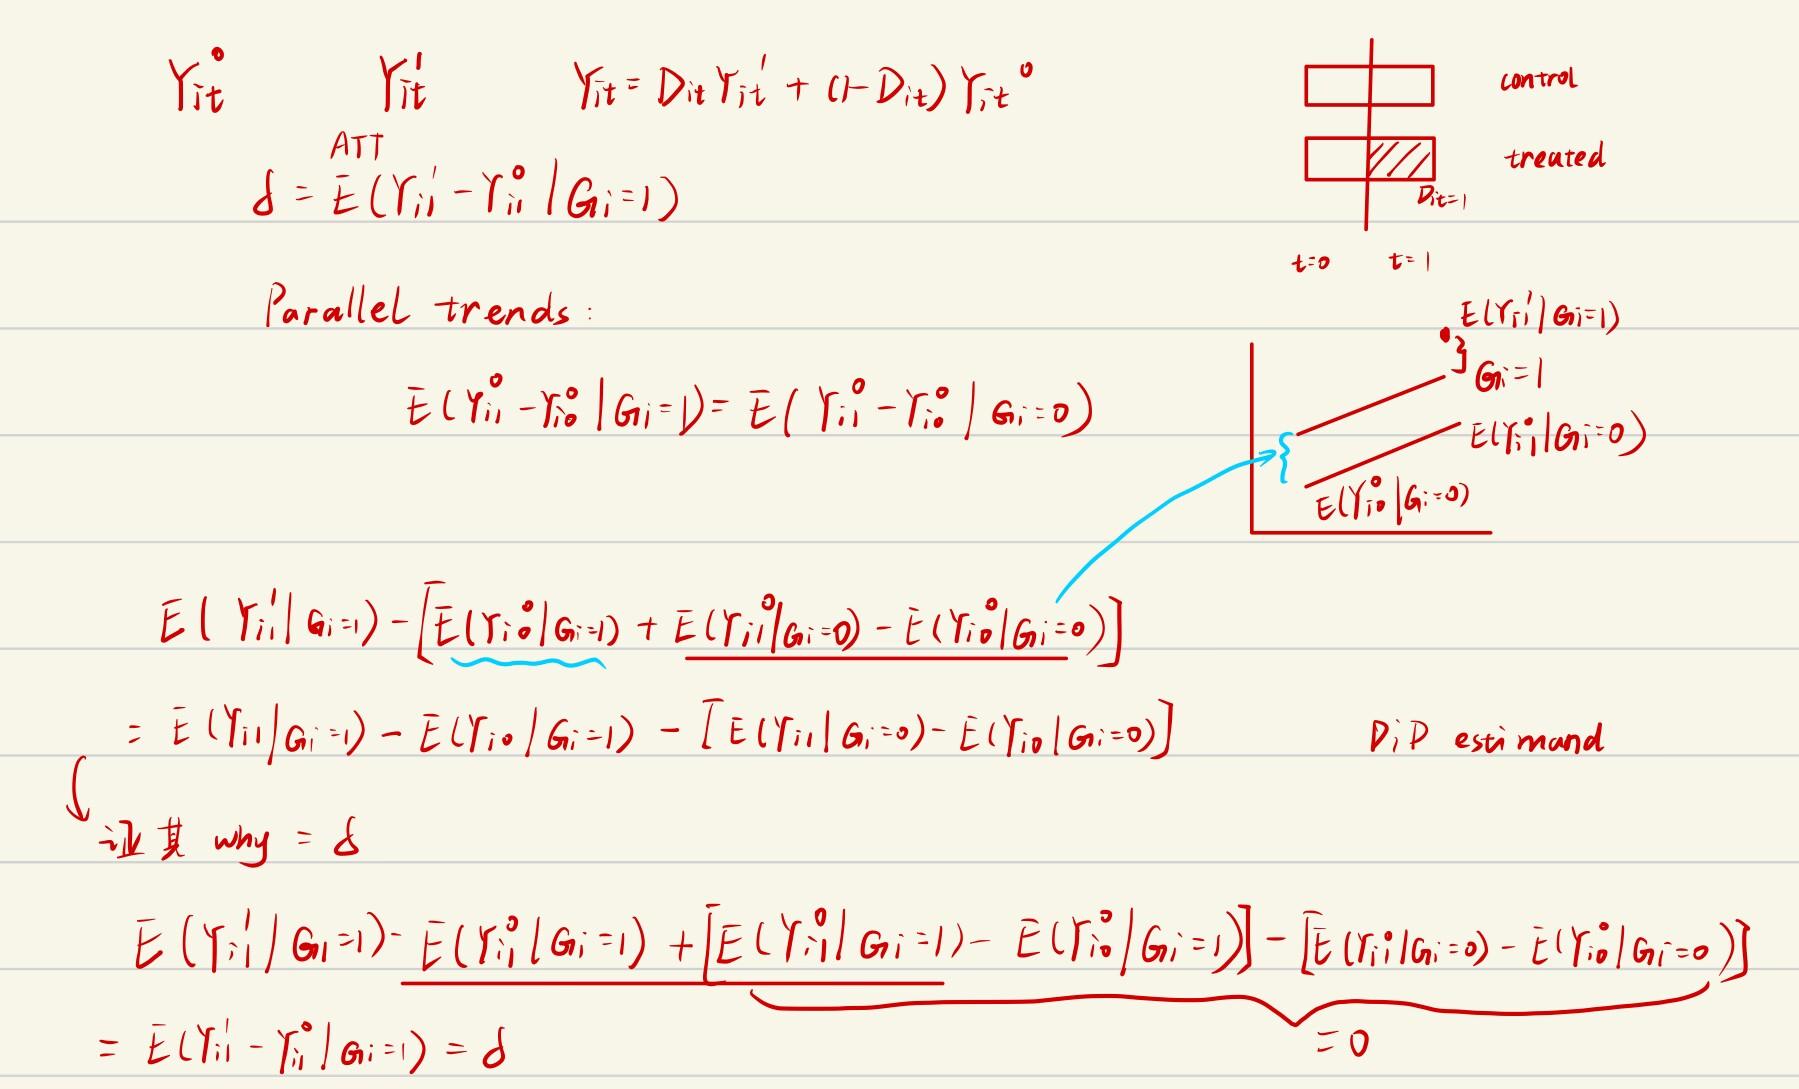 Y_it^0 Y_it^1 Y_it = D_it Y_it^1 + (1-D_it) Y_it^0
control
ATT
treated
δ = E(Y_i1^1 - Y_i1^0 | G_i=1)
D_it=1
t=0 t=1
Parallel trends:
E(Y_i1^1 | G_i=1)
G_i=1
E(Y_i1^0 - Y_i0^0 | G_i=1) = E(Y_i1^0 - Y_i0^0 | G_i=0)
E(Y_i1^0 | G_i=0)
E(Y_i0^0 | G_i=0)
E(Y_i1^1 | G_i=1) - [E(Y_i0^0 | G_i=1) + E(Y_i1^0 | G_i=0) - E(Y_i0^0 | G_i=0)]
= E(Y_i1 | G_i=1) - E(Y_i0 | G_i=1) - [E(Y_i1 | G_i=0) - E(Y_i0 | G_i=0)] DiD estimand
证其 why = δ
E(Y_i1^1 | G_i=1) - E(Y_i1^0 | G_i=1) + [E(Y_i1^0 | G_i=1) - E(Y_i0^0 | G_i=1)] - [E(Y_i1^0 | G_i=0) - E(Y_i0^0 | G_i=0)]
= 0
= E(Y_i1^1 - Y_i1^0 | G_i=1) = δ